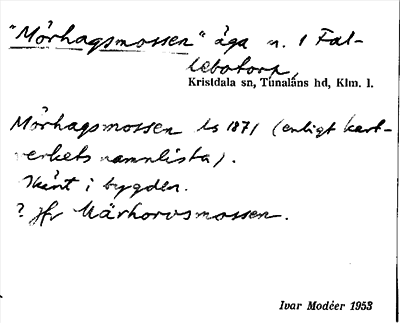 "Mörhagsmossen" äga n. 1 Fal-
lebotorp,
Kristdala sn, Tunaläns hd, Klm. l.
Mörhagsmossen ls 1871 (enligt kart-
verkets namnlista).
Känt i bygden.
? Jfr Märhorvsmossen.
Ivar Modéer 1953